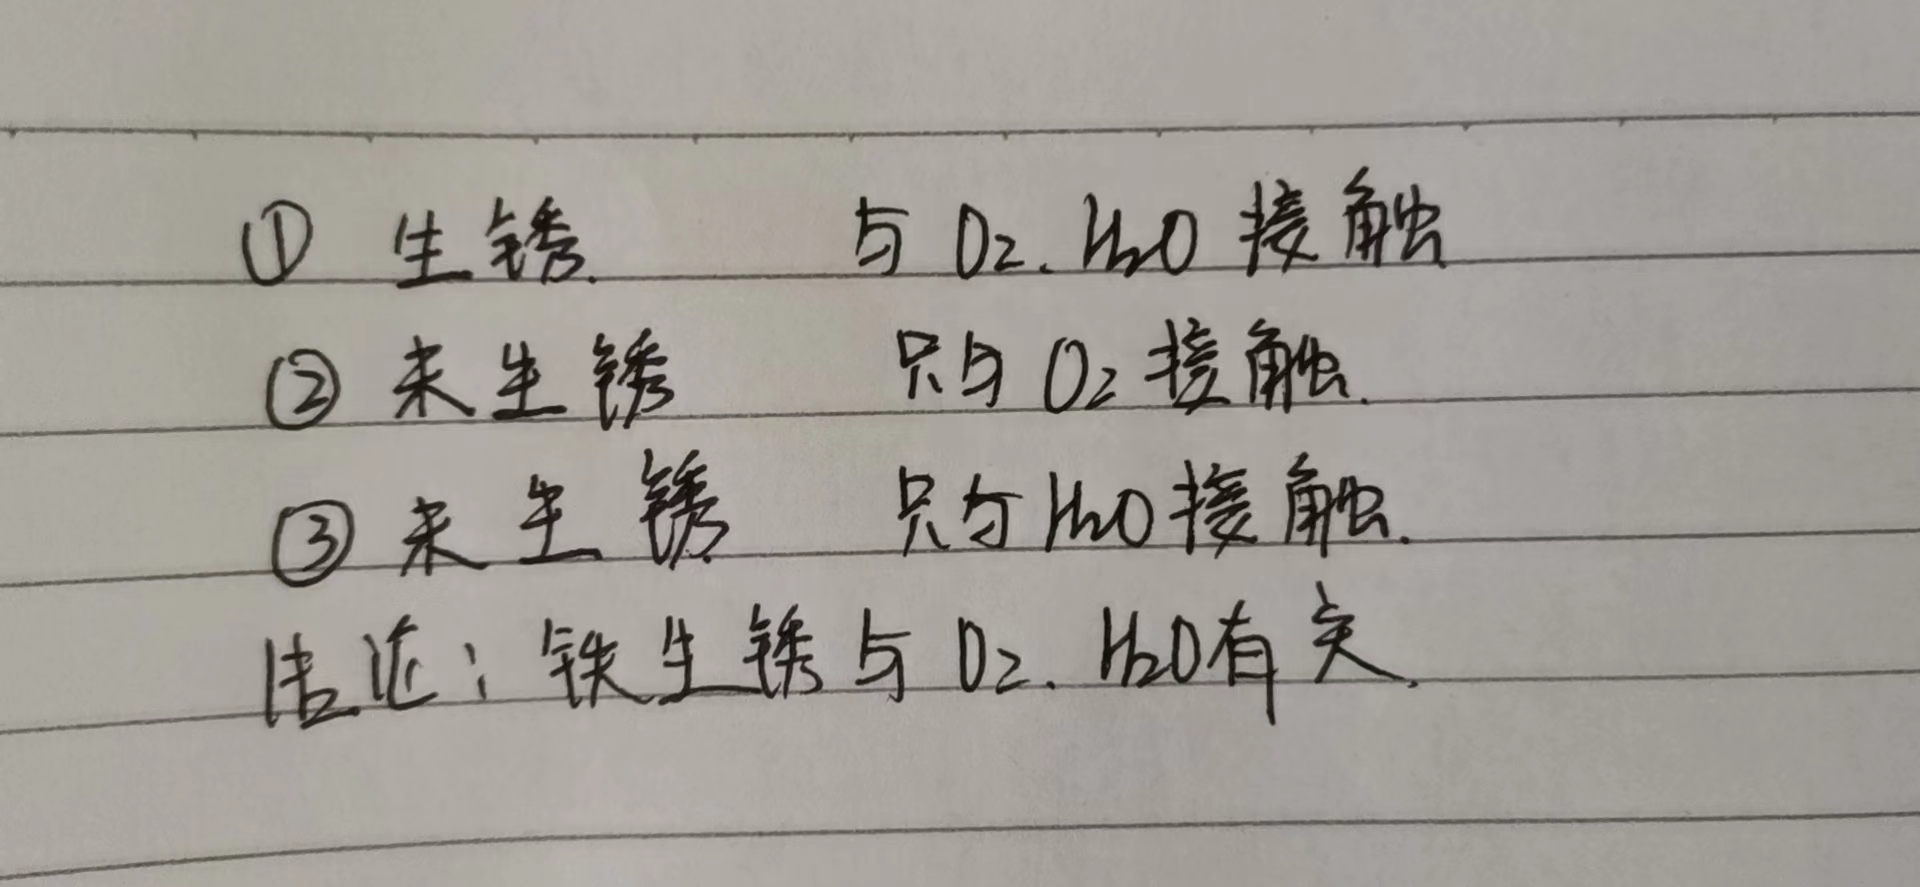 ① 生锈. 与O₂、H₂O接触
② 未生锈 只与O₂接触.
③ 未生锈 只与H₂O接触.
结论:铁生锈与O₂、H₂O有关.